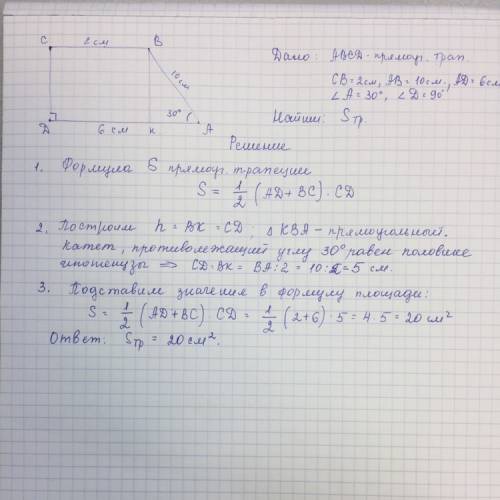 C 2 см B
Дано: ABCD - прямоуг. трап.
10 см
CB = 2см, AB = 10см, AD = 6см
∠A = 30°, ∠D = 90°
30°
D 6 см к A
Найти: Sтр.
Решение
1. Формула S прямоуг. трапеции
S = 1/2 (AD + BC) · CD
2. Построим h = BK = CD; Δ KBA - прямоугольный.
Катет, противолежащий углу 30° равен половине
гипотенузы ⇒ CD = BK = BA : 2 = 10 : 2 = 5 см.
3. Подставим значения в формулу площади:
S = 1/2 (AD + BC) · CD = 1/2 (2 + 6) · 5 = 4 · 5 = 20 см²
Ответ: Sтр = 20 см².